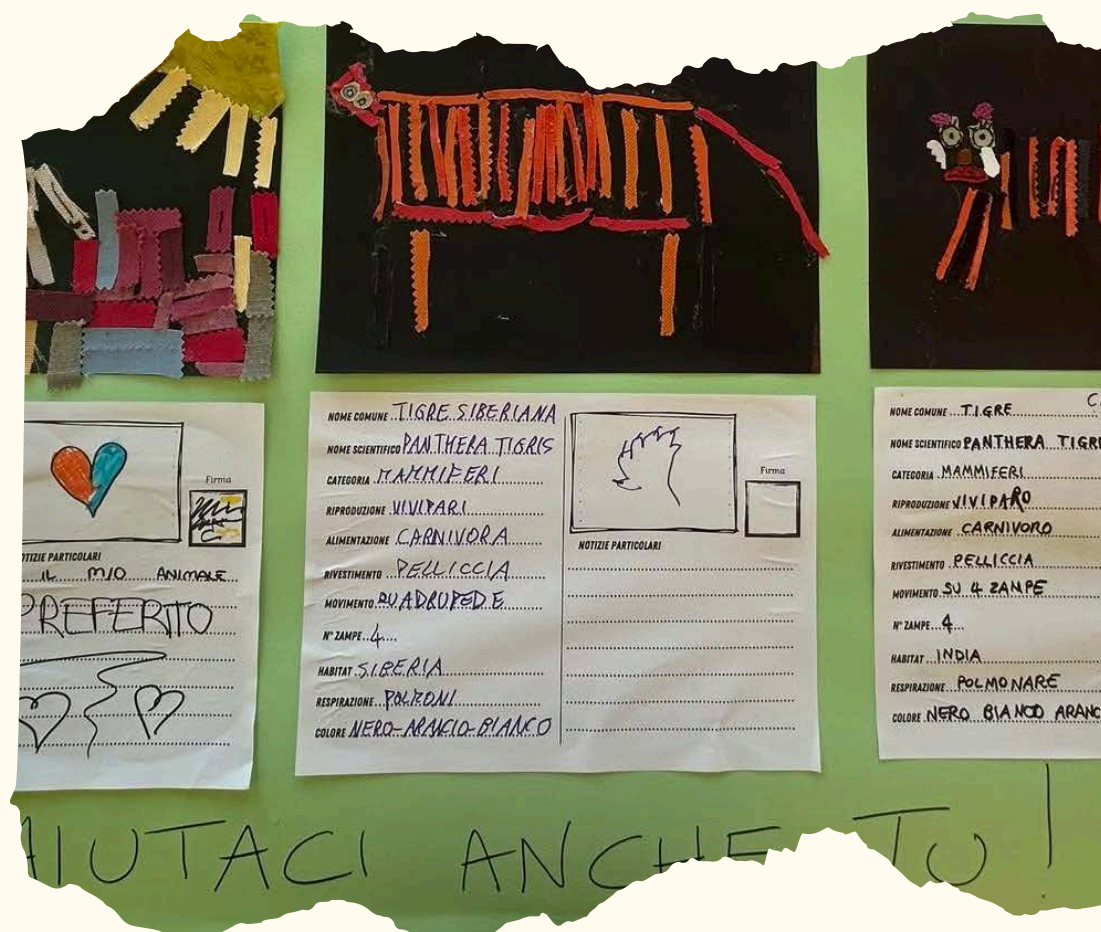 Firma
NOTIZIE PARTICOLARI
IL MIO ANIMALE
PREFERITO
NOME COMUNE TIGRE SIBERIANA
NOME SCIENTIFICO PANTHERA TIGRIS
CATEGORIA MAMMIFERI
RIPRODUZIONE VIVIPARI
ALIMENTAZIONE CARNIVORA
RIVESTIMENTO PELLICCIA
MOVIMENTO QUADRUPEDE
N° ZAMPE 4
HABITAT SIBERIA
RESPIRAZIONE POLMONI
COLORE NERO-ARANCIO-BIANCO
Firma
NOTIZIE PARTICOLARI
NOME COMUNE TIGRE
NOME SCIENTIFICO PANTHERA TIGR
CATEGORIA MAMMIFERI
RIPRODUZIONE VIVIPARO
ALIMENTAZIONE CARNIVORO
RIVESTIMENTO PELLICCIA
MOVIMENTO SU 4 ZAMPE
N° ZAMPE 4
HABITAT INDIA
RESPIRAZIONE POLMONARE
COLORE NERO BIANCO ARANC
AIUTACI ANCHE TU!